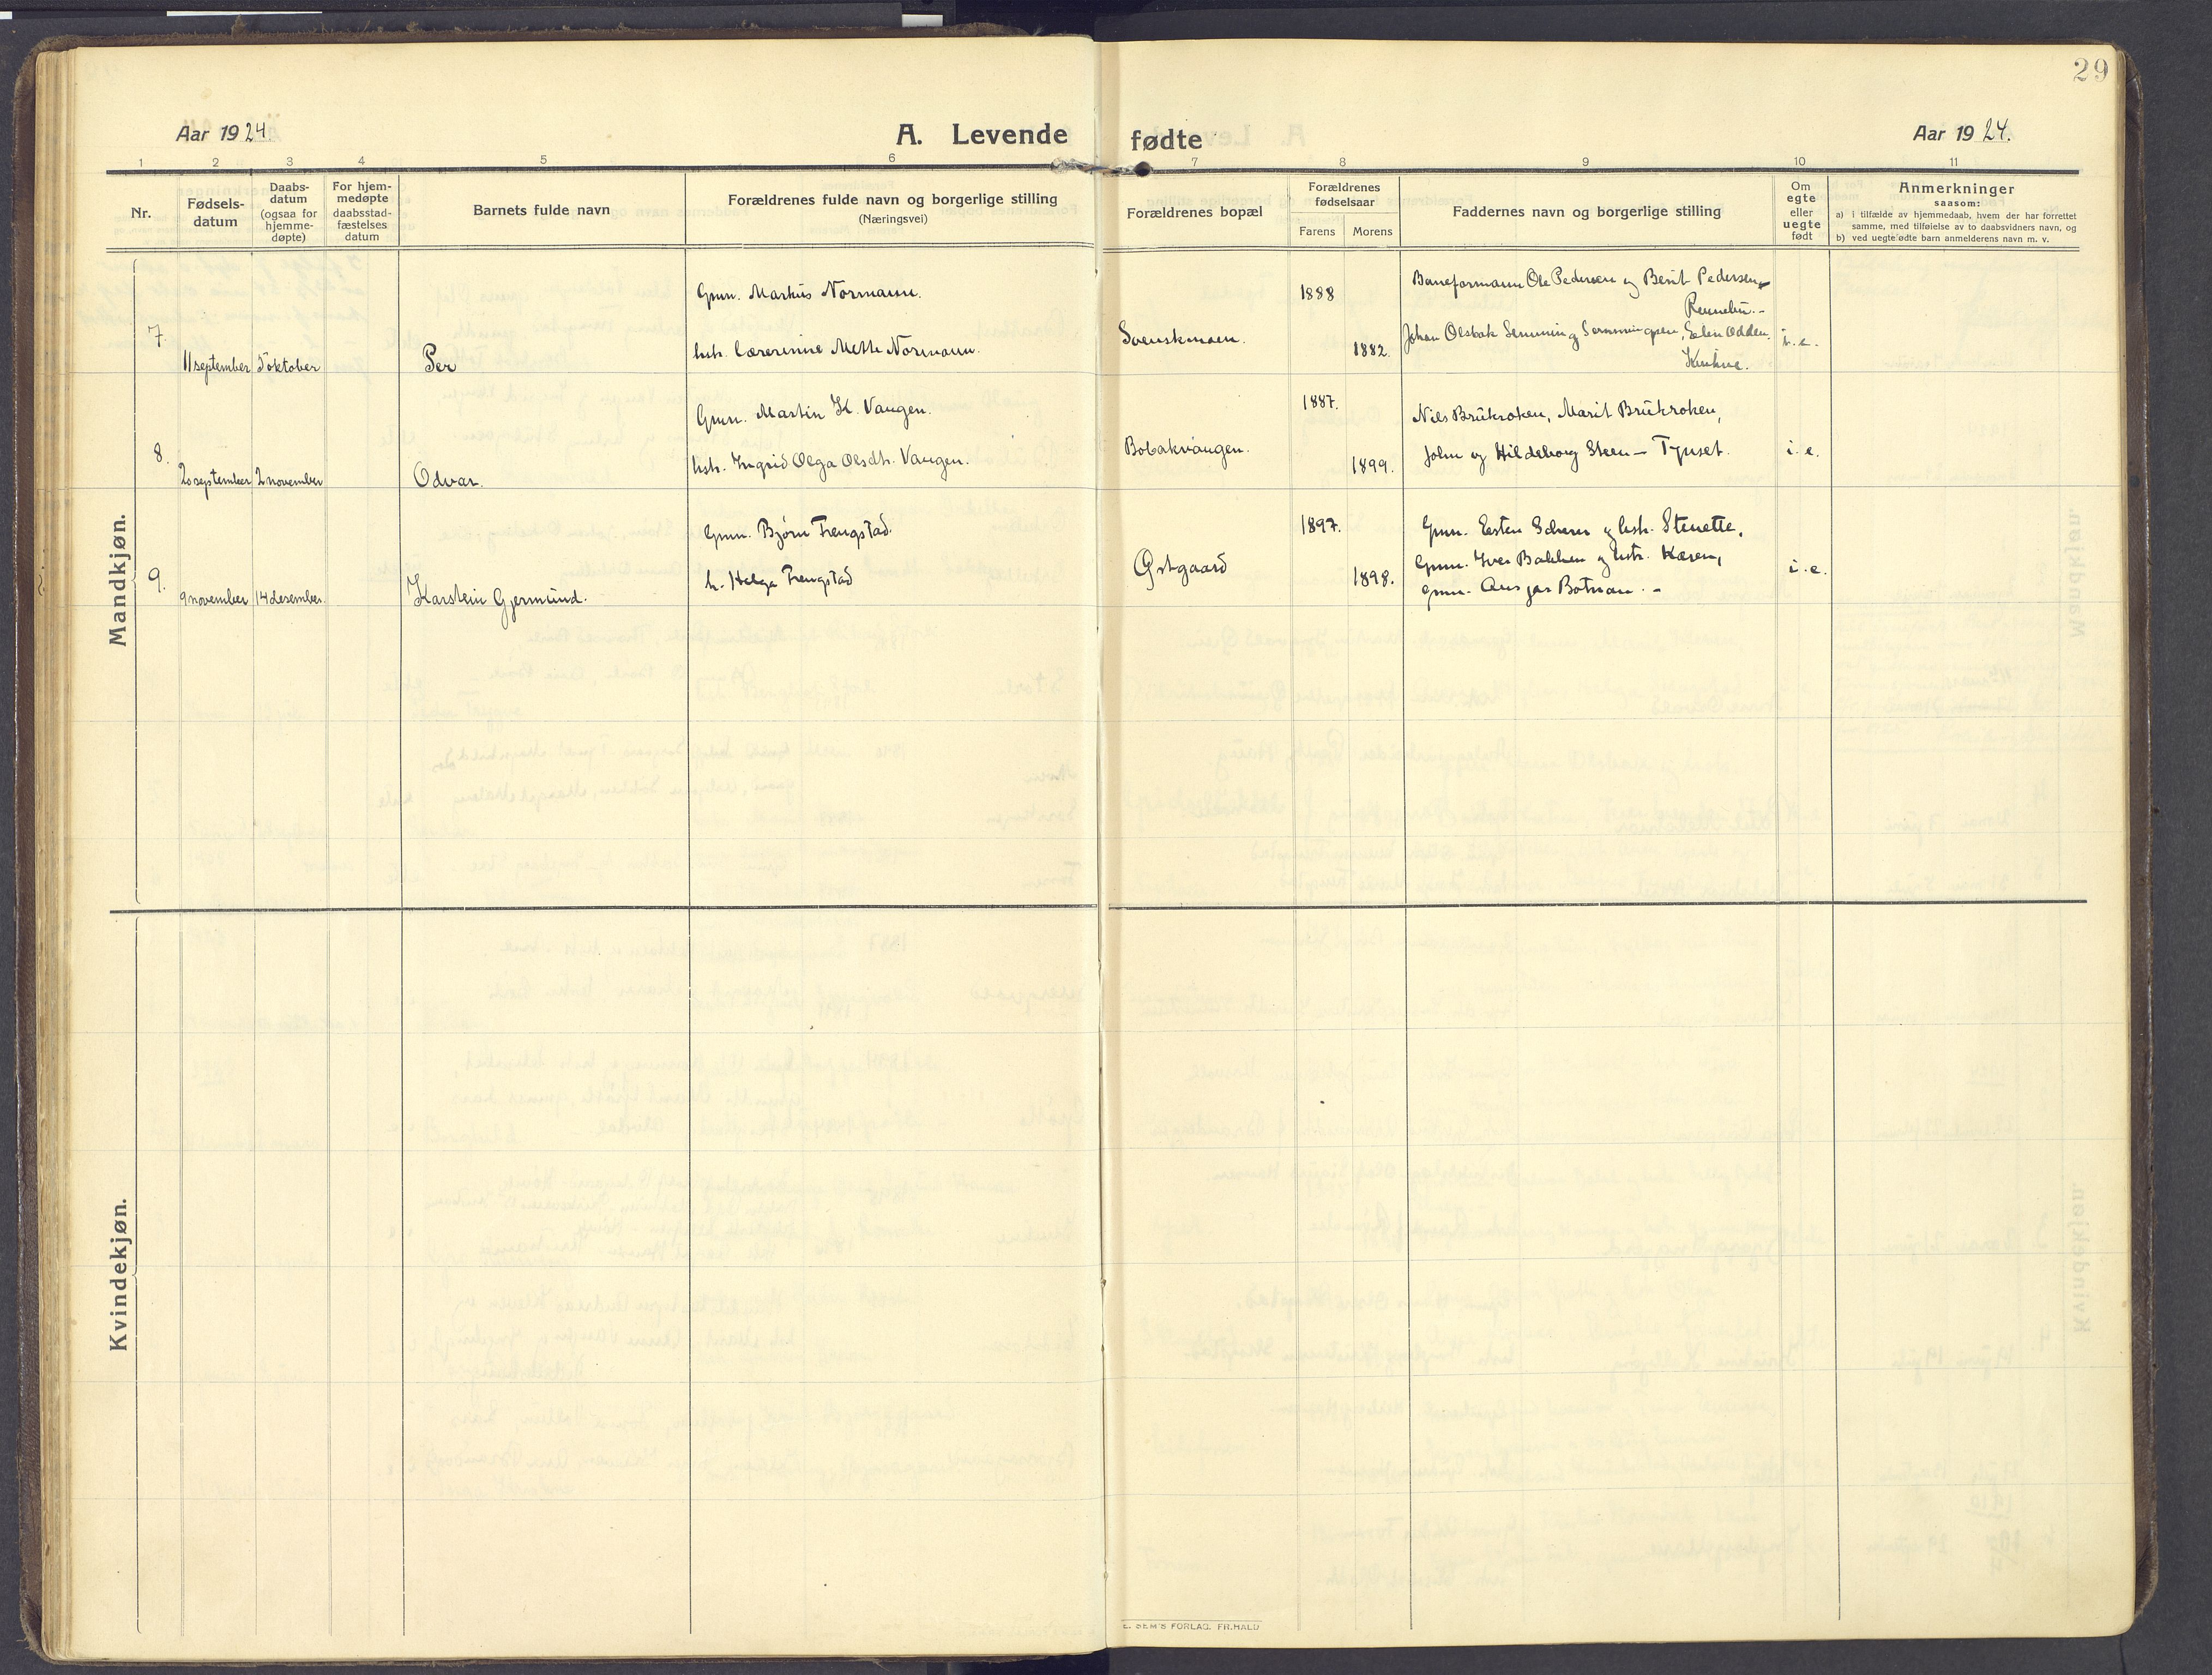 29
Aar 1924.
A. Levende fødte
Aar 1924.
1 2 3 4 5 6 7 8 9 10 11
Nr.
Fødsels-
datum
Daabs-
datum
(ogsaa for
hjemme-
døpte)
For hjem-
medøpte
daabsstad-
fæstelses
datum
Barnets fulde navn
Forældrenes fulde navn og borgerlige stilling
(Næringsvei)
Forældrenes bopæl
Forældrenes
fødselsaar
Farens
Morens
Faddernes navn og borgerlige stilling
Om
egte
eller
uegte
født
Anmerkninger
saasom:
a) i tilfælde av hjemmedaab, hvem der har forrettet
samme, med tilføielse av to daabsvidners navn, og
b) ved uegte fødte barn anmelderens navn m. v.
Mandkjøn.
7.
11 september
5 oktober
Per
Gmn. Markus Normann.
hstr. lærerinne Mette Normann.
Svenskmoen.
1888
1882.
Baneformann Ole Pedersen og Berit Pedersen,
Rennebu.-
Johan Olsbak Semming Semmingsen, Odden.
Kvikne.
i.e.
8.
20 september
2 november
Odvar.
Gmn. Martin K. Vangen.
hstr. Ingrid Olga Olsdtr. Vangen.
Bobakvangen.
1887.
1899.
Nils Brukroken, Marit Brukroken,
John og Hildeborg Steen - Tynset.
i.e.
9.
9 november
14 desember.
Karstein Gjermund.
Gmn. Bjørn Frengstad.
h. Helga Frengstad
Østgaard
1897.
1898.
Gmn. Esten og hstr. Stenette,
Gmn. Iver Bakken og hstr. Karen,
gmn. Ansgar .-
i.e.
Kvindekjøn.
E. SEM'S FORLAG. FR.HALD